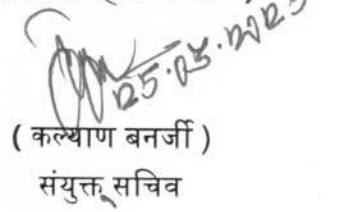 25.03.2025
( कल्याण बनर्जी )
संयुक्त सचिव